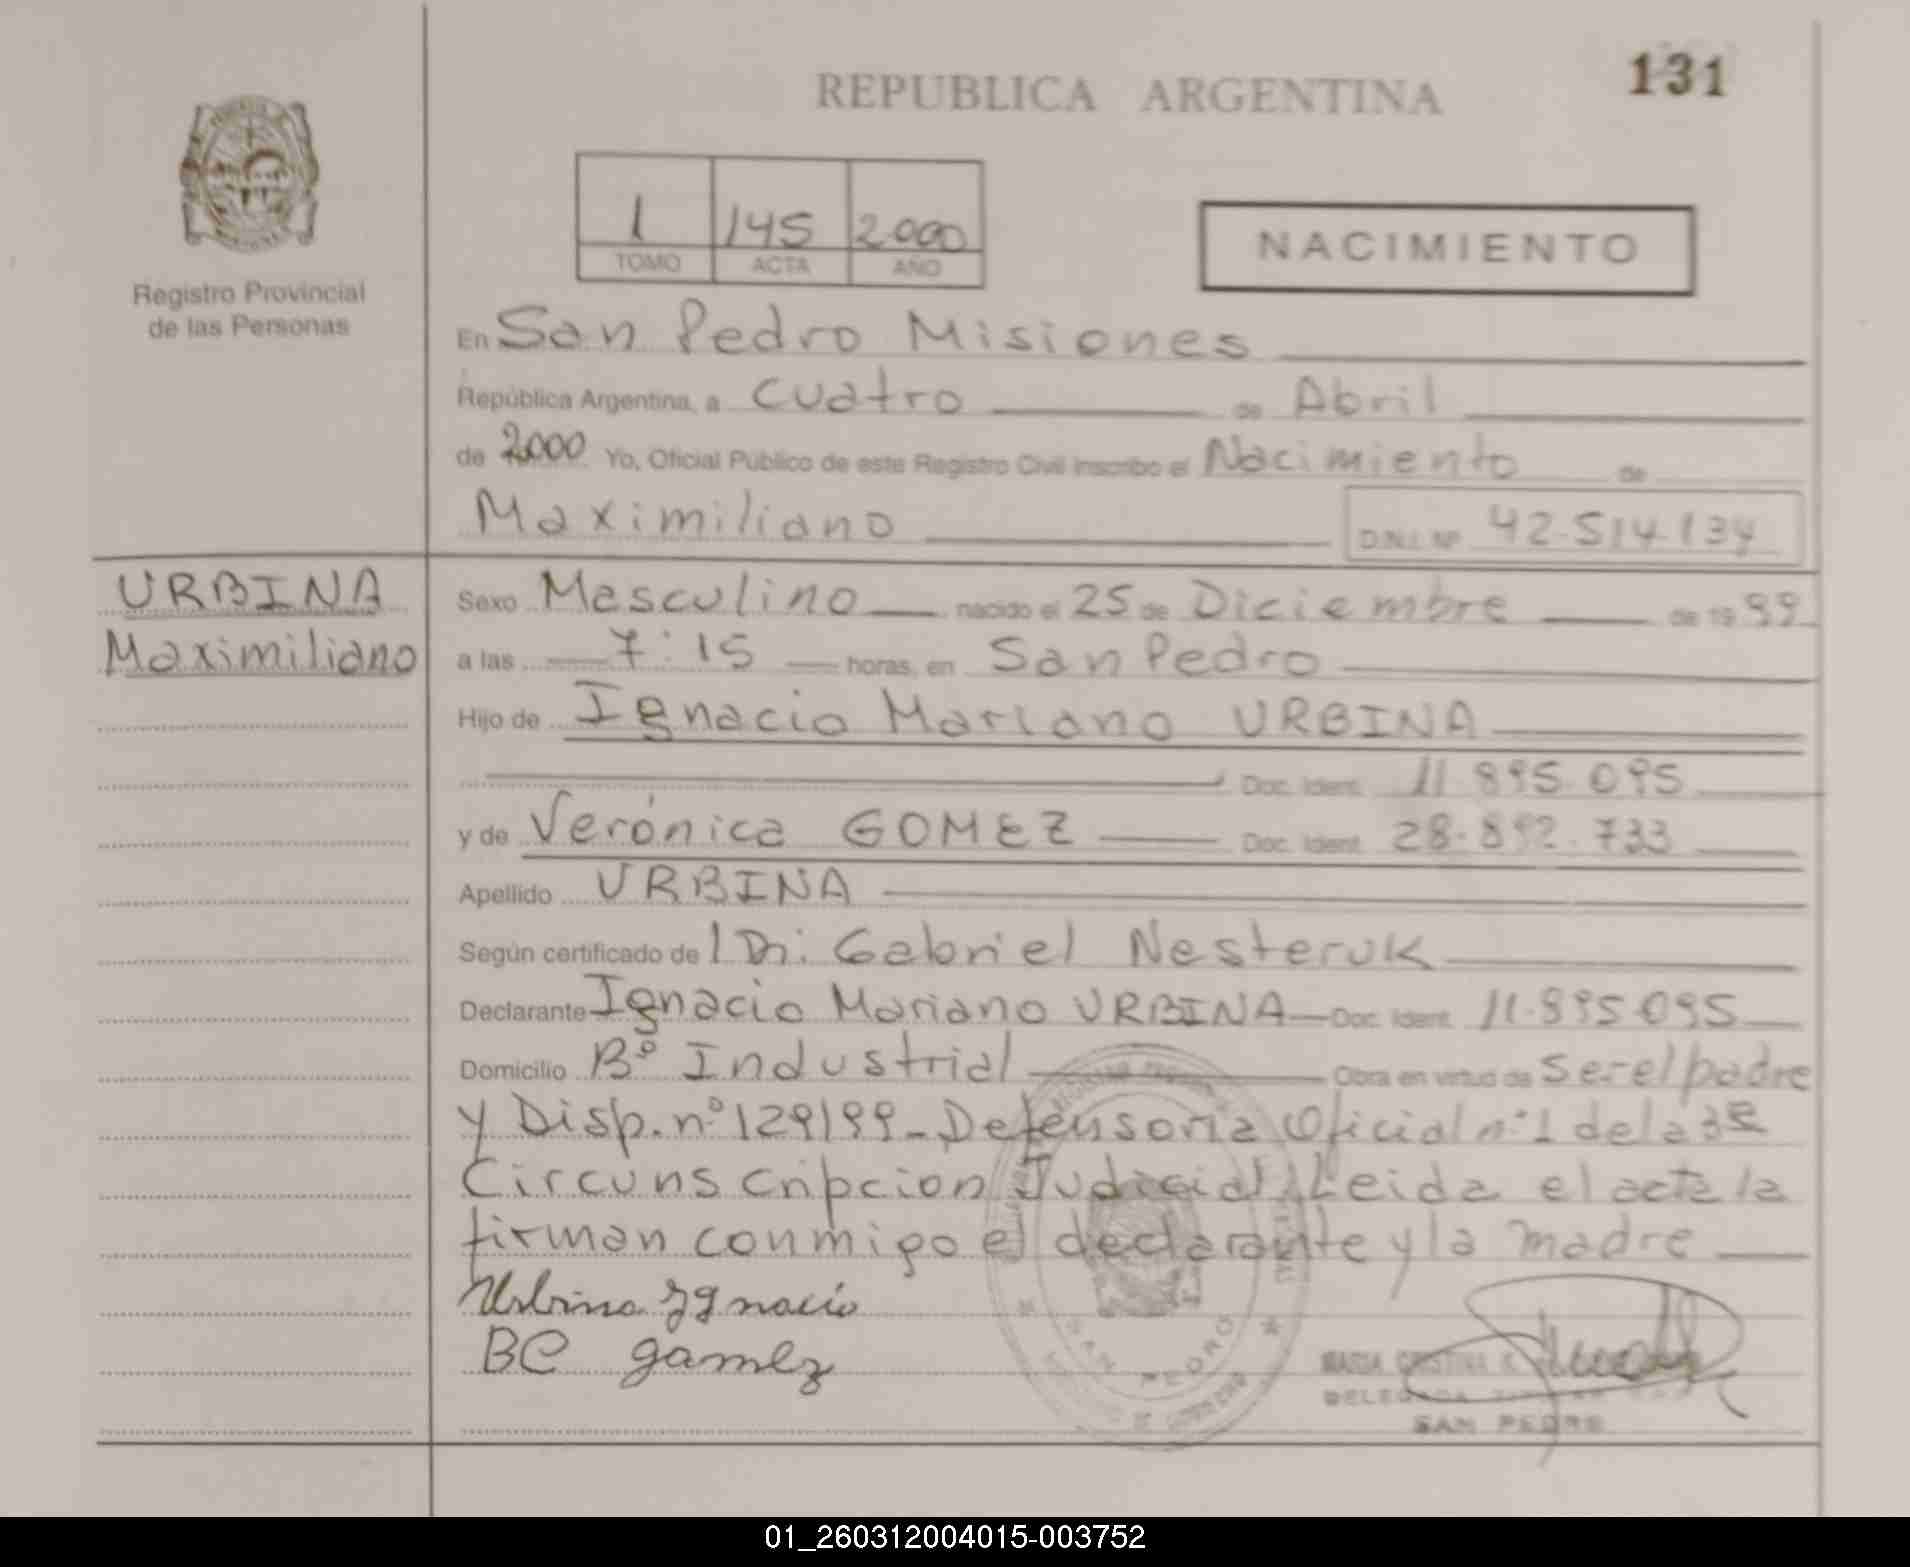 131
REPUBLICA ARGENTINA
1 145 2000
TOMO ACTA AÑO
NACIMIENTO
Registro Provincial
de las Personas
En San Pedro Misiones
República Argentina, a cuatro de Abril
de 2000 Yo, Oficial Público de este Registro Civil inscribo el Nacimiento de
Maximiliano D.N.I. Nº 42.514.134
URBINA
Maximiliano
Sexo Masculino nacido el 25 de Diciembre de 1999
a las 7:15 horas, en San Pedro
Hijo de Ignacio Mariano URBINA
Doc. Ident. 11.895.095
y de Verónica GOMEZ Doc. Ident. 28.892.733
Apellido URBINA
Según certificado de l Dr. Gabriel Nesteruk
Declarante Ignacio Mariano URBINA Doc. Ident. 11.895.095
Domicilio Bº Industrial Obra en virtud de ser el padre
y Disp. nº 129/99 - Defensoria Oficial nº 1 de la 3ª
Circunscripcion Judicial, Leida el acta la
firman conmigo el declarante y la madre
Urbina Ignacio
BC gomez
SAN PEDRO
MARIA CRISTINA
DELEGADA
SAN PEDRO
01_260312004015-003752